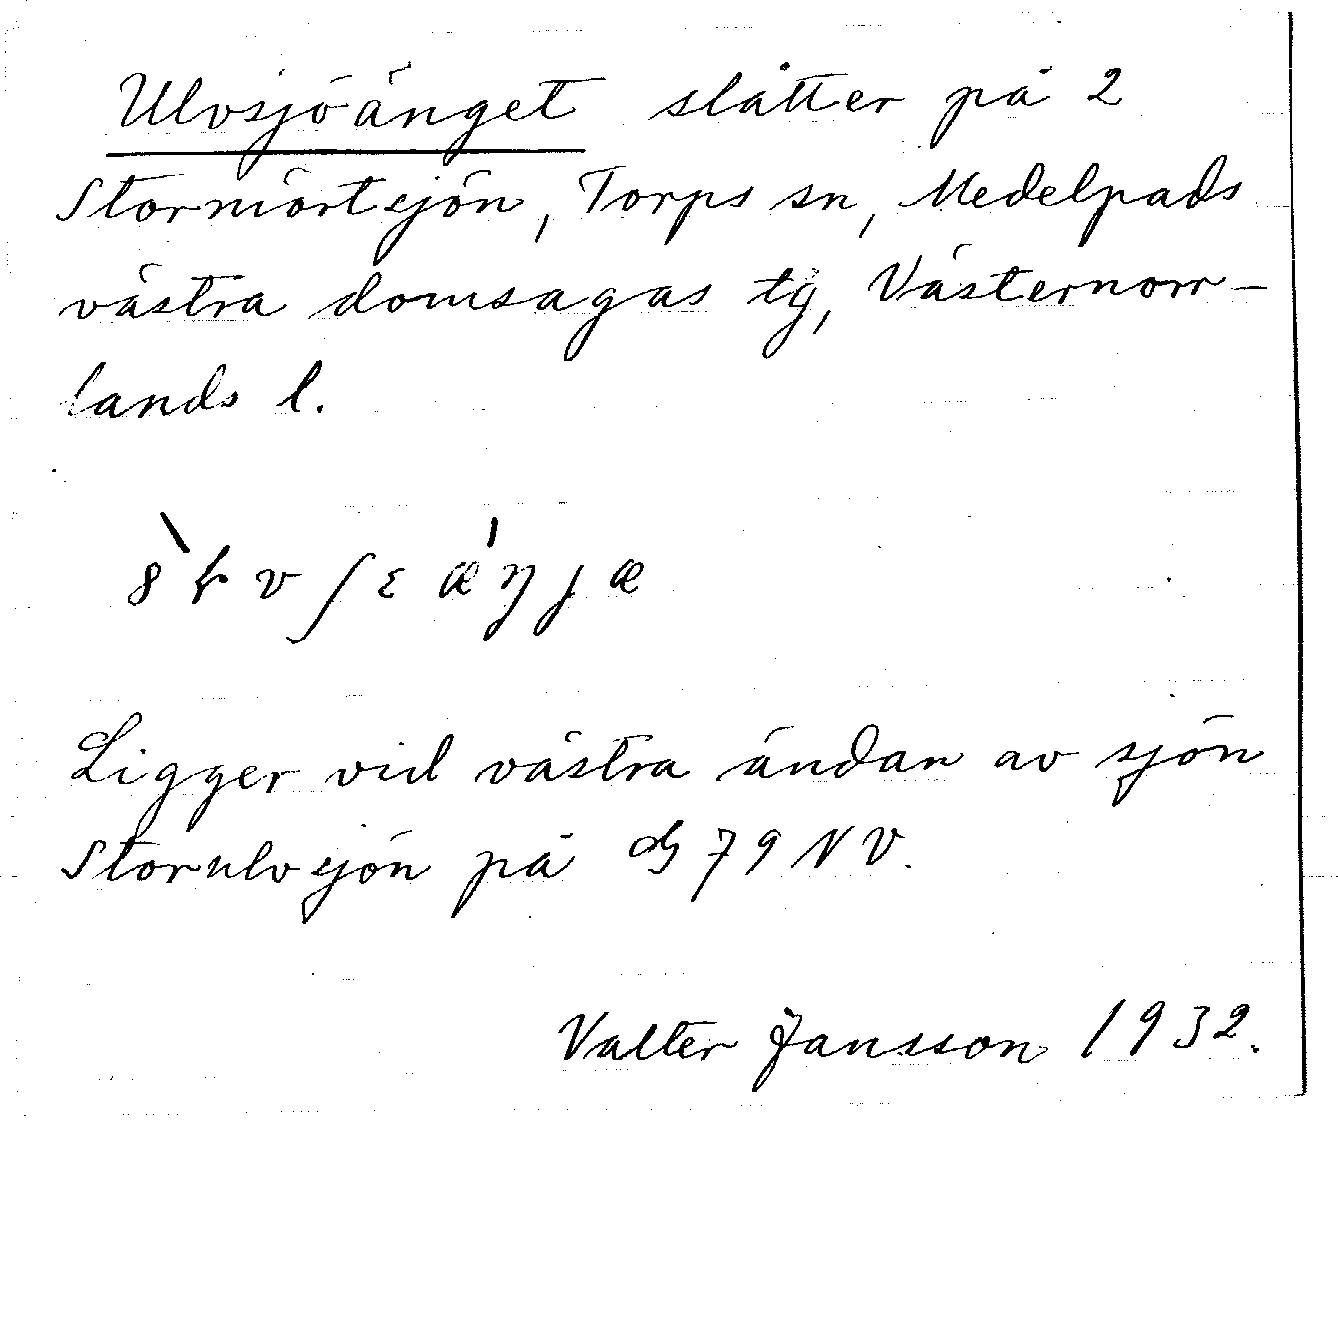 Ulvsjöänget slåtter på 2
Stormörtsjön, Torps sn, Medelpads
västra domsagas tg, Västernorr-
lands l.
Ligger vid västra ändan av sjön
Storulvsjön på 79 NV.
Valter Jansson 1932.